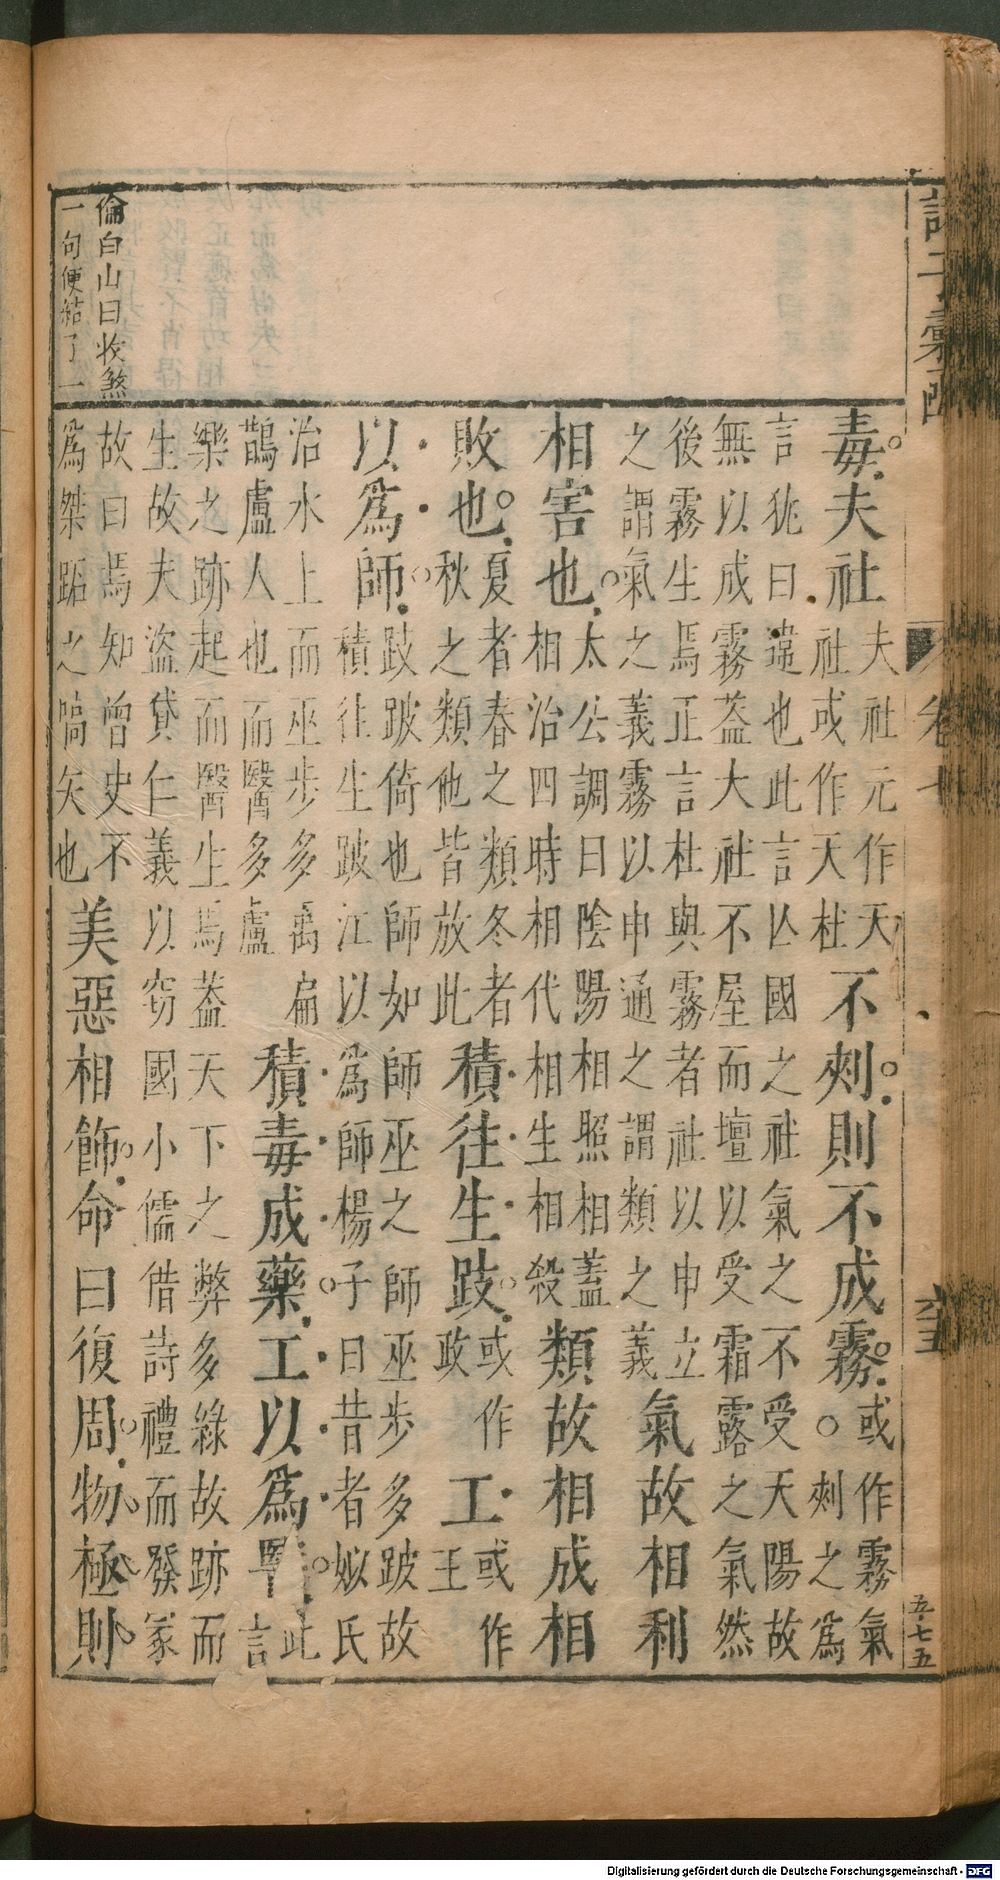 諸子彙函
卷十
六五
五七五
毒夫社夫社元作天社或作天杜不剌則不成霧或作霧氣〇剌之為
言犹曰違也此言亾國之社氣之不受天陽故
無以成霧葢大社不屋而壇以受霜露之氣然
後霧生焉正言杜與霧者社以申立
之謂氣之義霧以申通之謂類之義氣故相利
相害也太公調曰陰陽相照相蓋相治四時相代相生相殺類故相成相
敗也夏者春之類冬者秋之類他皆放此積往生跂或作政工或作王
以為師跂跛倚也師如師巫之師巫步多跛故積往生跛江以為師楊子曰昔者姒氏
治水上而巫步多禹扁
鵲盧人也而醫多盧積毒成藥工以為醫此言
樂之跡起而醫生焉葢天下之弊多緣故跡而
生故夫盜貸仁義以窃國小儒借詩禮而發冢
故曰焉知曾史不
為桀跖之嚆矢也美惡相飾命曰復周物極則
倫白山曰收煞
一句便結了一
Digitalisierung gefördert durch die Deutsche Forschungsgemeinschaft - DFG